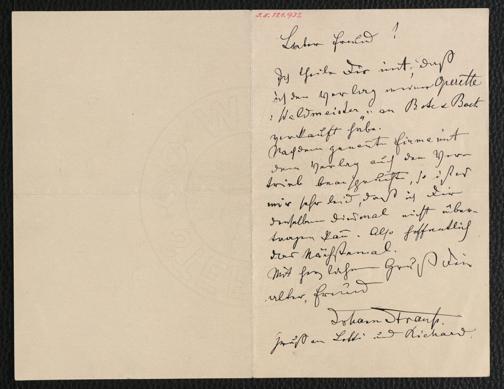 Lieber Freund!
Ich theile Dir mit, daß
ich den Verlag meiner Operette
"Waldmeister" an Bote & Bock
verkauft habe.
Nachdem genannte Firma mit
dem Verlag auch den Ver-
trieb beansprucht, so ist es
mir sehr leid, daß ich Dir
denselben diesmal nicht über-
tragen kann. Also hoffentlich
das Nächstemal.
Mit herzlichem Gruß Dein
alter Freund
Johann Strauss.
Grüße an Lotti und Richard.